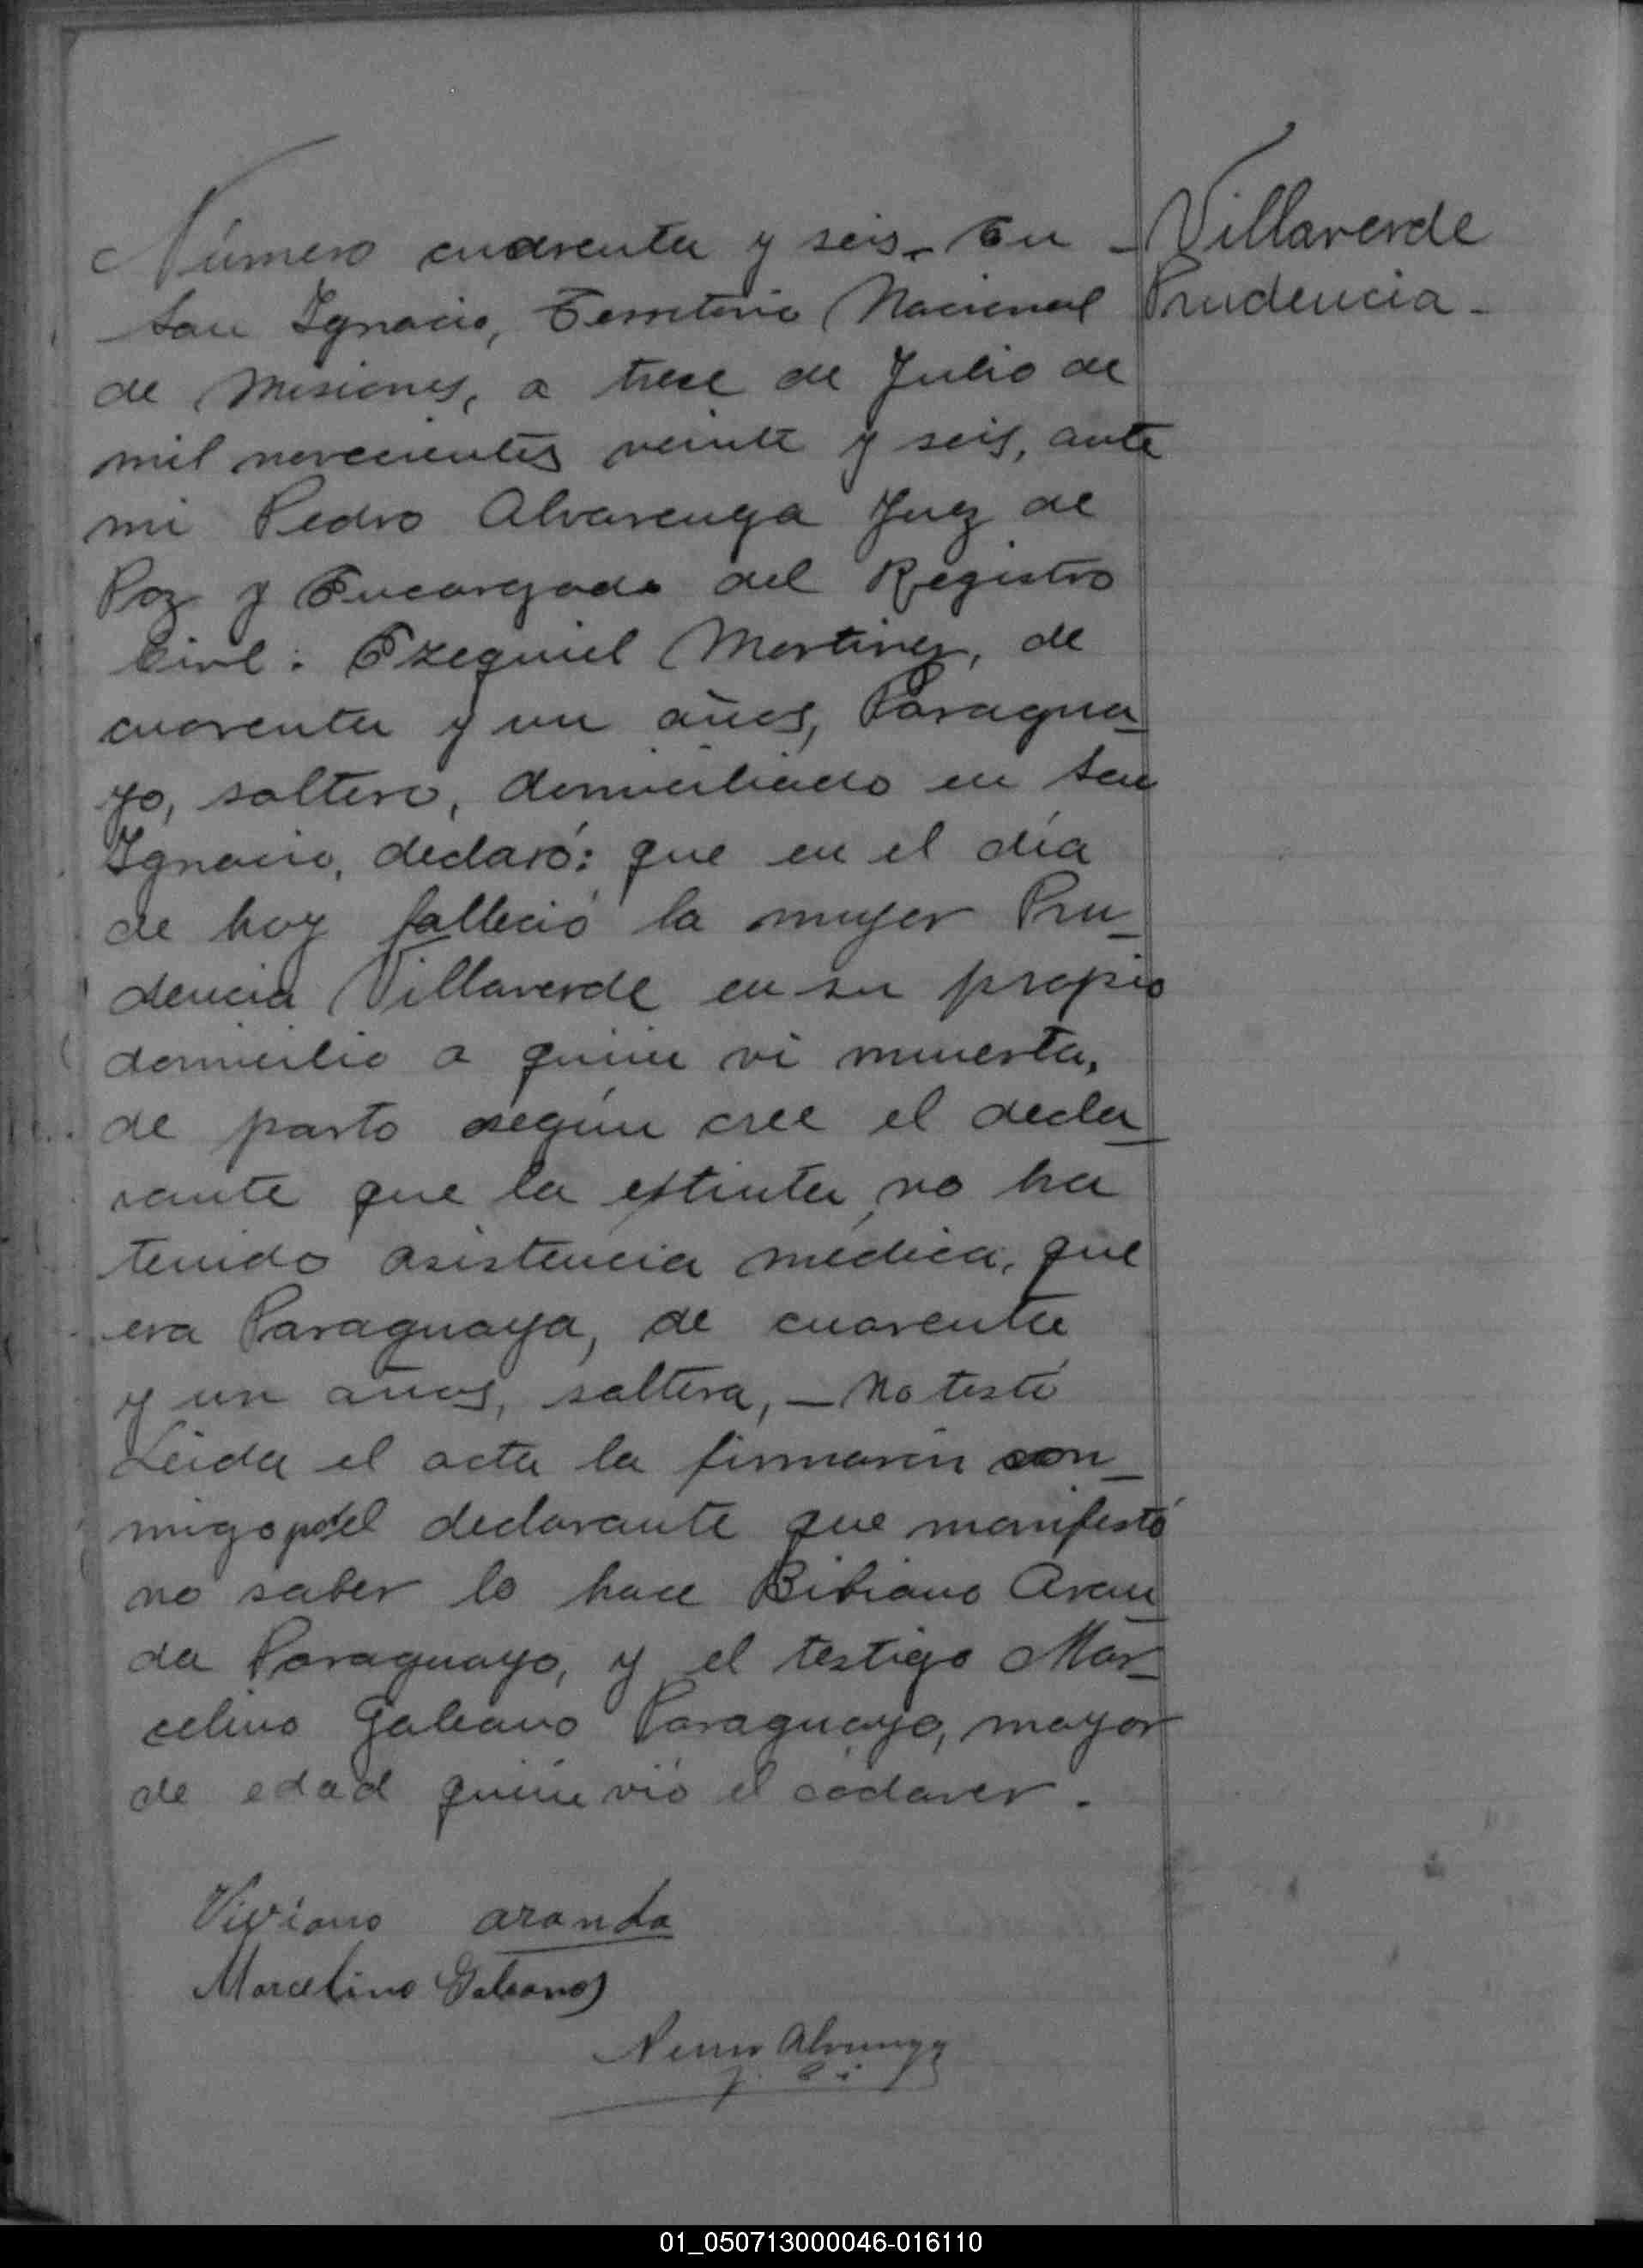 Villaverde
Prudencia -
Número cuarenta y seis. En -
San Ignacio, Territorio Nacional
de Misiones, a trece de Julio de
mil novecientos veinte y seis, ante
mi Pedro Alvarenga Juez de
Paz y Encargado del Registro
Civil: Ezequiel Martinez, de
cuarenta y un años, Paragua_
yo, soltero, domiciliado en San
Ignacio, declaró: que en el día
de hoy falleció la mujer Pru_
dencia Villaverde en su propio
domicilio a quien vi muerta,
de parto según cree el decla_
rante que la estinta no ha
tenido asistencia médica, que
era Paraguaya, de cuarenta
y un años, soltera, - No testó
Leida el acta la firmaron con_
migo por el declarante que manifestó
no saber lo hace Bibiano Aran_
da Paraguayo, y el testigo Mar_
celino Galeano Paraguayo, mayor
de edad quien vió el cadaver.
Viviano aranda
Marcelino Galeano
Alvarenga
01_050713000046-016110